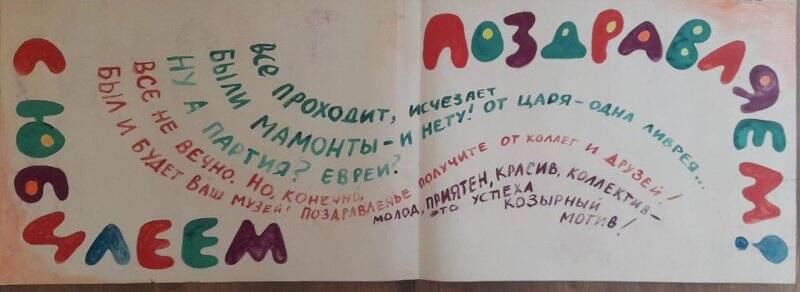 ПОЗДРАВЛЯЕМ!
С ЮБИЛЕЕМ
ВСЕ ПРОХОДИТ, ИСЧЕЗАЕТ
БЫЛИ МАМОНТЫ – И НЕТУ! ОТ ЦАРЯ – ОДНА ЛИВРЕЯ...
НУ А ПАРТИЯ? ЕВРЕИ?
ВСЕ НЕ ВЕЧНО. НО, КОНЕЧНО,
БЫЛ И БУДЕТ ВАШ МУЗЕЙ! ПОЗДРАВЛЕНЬЕ ПОЛУЧИТЕ ОТ КОЛЛЕГ И ДРУЗЕЙ!
МОЛОД, ПРИЯТЕН, КРАСИВ, КОЛЛЕКТИВ –
ЭТО УСПЕХА КОЗЫРНЫЙ
МОТИВ!